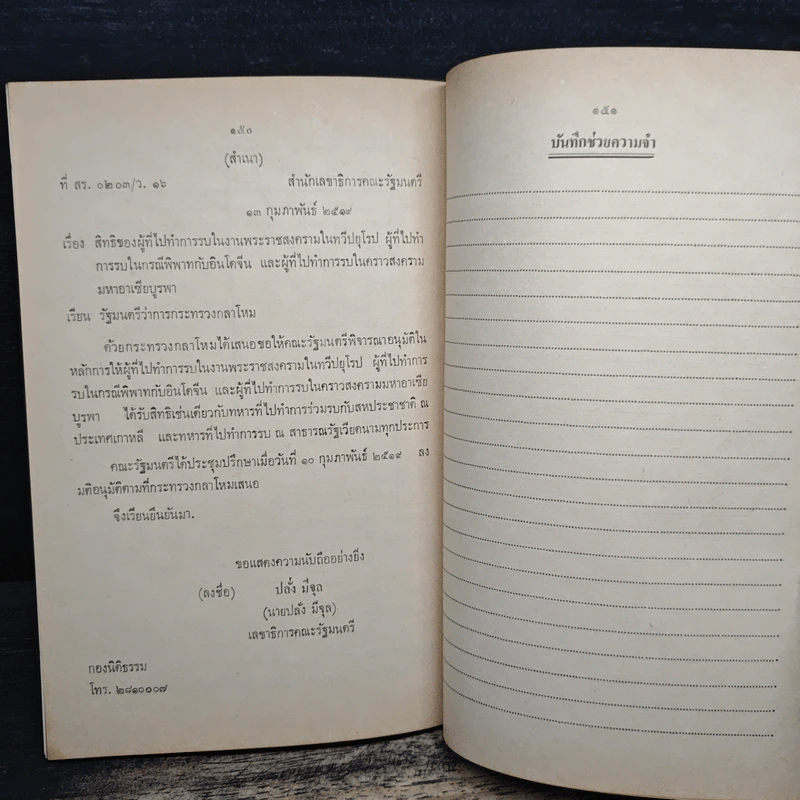 ๑๕๐
(สำเนา)
ที่ สร. ๐๒๐๓/ว. ๑๖ สำนักเลขาธิการคณะรัฐมนตรี
๑๓ กุมภาพันธ์ ๒๕๑๙
เรื่อง สิทธิของผู้ที่ไปทำการรบในงานพระราชสงครามในทวีปยุโรป ผู้ที่ไปทำ
การรบในกรณีพิพาทกับอินโดจีน และผู้ที่ไปทำการรบในคราวสงคราม
มหาอาเซียบูรพา
เรียน รัฐมนตรีว่าการกระทรวงกลาโหม
ด้วยกระทรวงกลาโหมได้เสนอขอให้คณะรัฐมนตรีพิจารณาอนุมัติใน
หลักการให้ผู้ที่ไปทำการรบในงานพระราชสงครามในทวีปยุโรป ผู้ที่ไปทำการ
รบในกรณีพิพาทกับอินโดจีน และผู้ที่ไปทำการรบในคราวสงครามมหาอาเซีย
บูรพา ได้รับสิทธิเช่นเดียวกับทหารที่ไปทำการร่วมรบกับสหประชาชาติ ณ
ประเทศเกาหลี และทหารที่ไปทำการรบ ณ สาธารณรัฐเวียดนามทุกประการ
คณะรัฐมนตรีได้ประชุมปรึกษาเมื่อวันที่ ๑๐ กุมภาพันธ์ ๒๕๑๙ ลง
มติอนุมัติตามที่กระทรวงกลาโหมเสนอ
จึงเรียนยืนยันมา.
ขอแสดงความนับถืออย่างยิ่ง
(ลงชื่อ) ปลั่ง มีจุล
(นายปลั่ง มีจุล)
เลขาธิการคณะรัฐมนตรี
กองนิติธรรม
โทร. ๒๘๑๐๐๐๗
๑๕๑
บันทึกช่วยความจำ